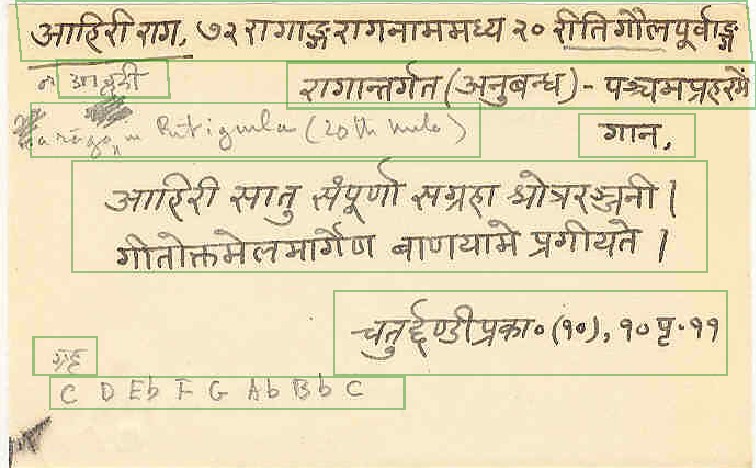 आहिरी राग, ७२ रागाङ्ग रागनाममध्य २० रीतिगौल पूर्वाङ्ग
रागान्तर्गत (अनुबन्ध) - पञ्चमप्रहरमें
Ritigaula (20th mela)
गान,
आहिरी सातु संपूर्णा सग्रहा श्रोत्ररञ्जनी |
गीतोक्तमेलमार्गेण बाणयामे प्रगीयते |
चतुर्द्दण्डीप्रका० (१०), १० पृ. ११
ग्रह
C D Eb F G Ab Bb C